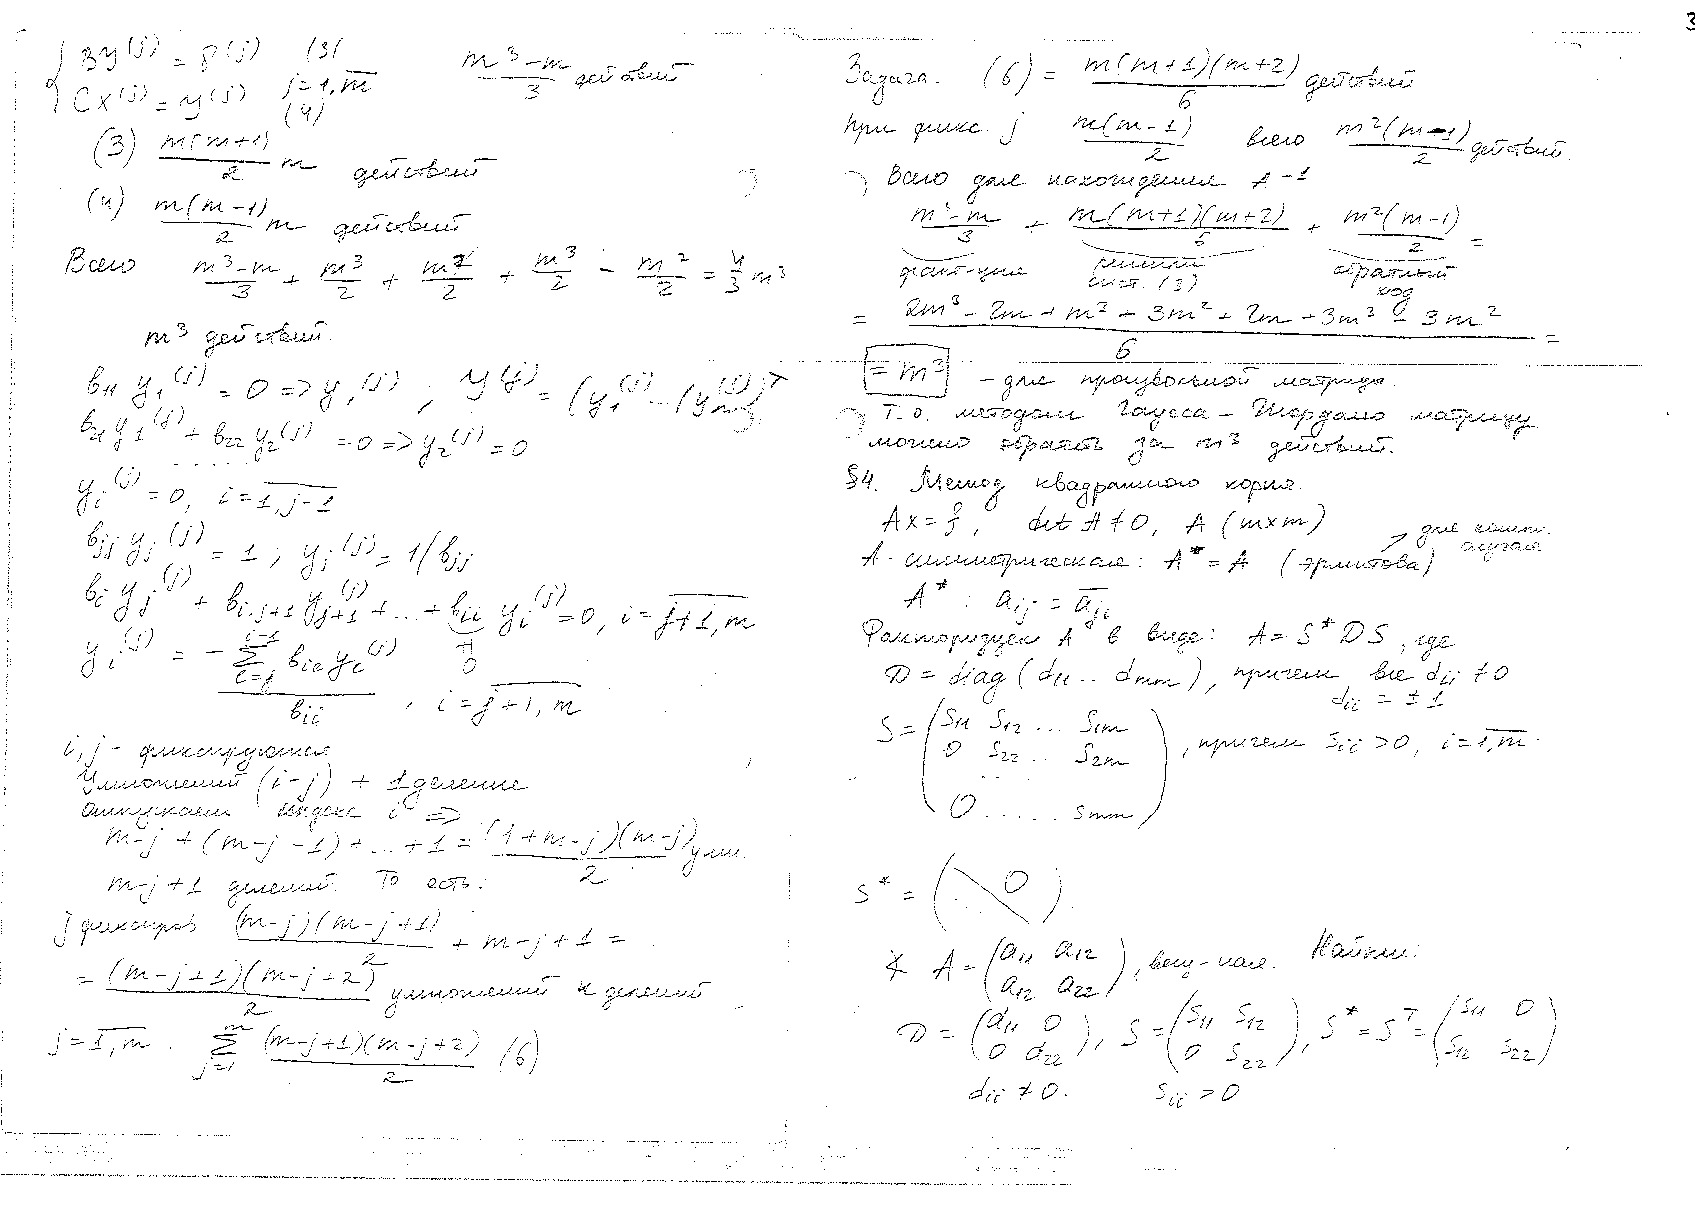 3
{ By^(j) = P^(j) (3)
Cx^(j) = y^(j) j = 1,m̅ (4)
(m³-m)/3 действий
(3) m(m+1)/2 m действий
(4) m(m-1)/2 m действий
Всего (m³-m)/3 + m³/2 + m²/2 + m³/2 - m²/2 = 4/3 m³
m³ действий.
b₁₁ y₁^(j) = 0 => y₁^(j) , y^(j) = (y₁^(j) - (y_m^(j))^T
b₂₁ y₁^(j) + b₂₂ y₂^(j) = 0 => y₂^(j) = 0
. . . . . .
y_i^(j) = 0, i = 1,j-1
b_jj y_j^(j) = 1 ; y_j^(j) = 1/b_jj
b_i y_j^(j) + b_i,j+1 y_j+1^(j) + ... + b_ii y_i^(j) = 0, i = j+1,m
y_i^(j) = - (Σ_{l=j}^{i-1} b_il y_l^(j)) / b_ii , i = j+1,m
i, j - фиксируются
Умножений (i-j) + 1 деление
Отпускаем индекс i =>
m-j + (m-j-1) + ... + 1 = (1+m-j)(m-j)/2 умн.
m-j+1 делений. То есть:
j фиксиров (m-j)(m-j+1)/2 + m-j+1 =
= (m-j+1)(m-j+2)/2 умножений и делений
j = 1,m . Σ_{j=1}^{m} (m-j+1)(m-j+2)/2 (6)
Задача. (6) = m(m+1)(m+2)/6 действий
При фикс. j m(m-1)/2 всего m²(m-1)/2 действий.
Всего для нахождения A⁻¹
(m³-m)/3 + m(m+1)(m+2)/6 + m²(m-1)/2 =
факт-ция решения сист. (3) обратный ход
= (2m³ - 2m + m³ + 3m² + 2m + 3m³ - 3m²)/6 =
= m³ - для произвольной матрицы.
Т.о. методом Гаусса - Жордано матрицу
можно обратить за m³ действий.
§4. Метод квадратного корня.
Ax = f, det A ≠ 0, A (m×m)
A - симметрическая: A* = A (эрмитова) → для компл. случая
A* : a_ij = a̅_ji
Факторизуем A в виде: A = S* D S, где
D = diag (d₁₁ .. d_mm), причем все d_ii ≠ 0
d_ii = ± 1
S = ( S₁₁ S₁₂ ... S₁m
0 S₂₂ .. S₂m
0 ..... S_mm ) , причем S_ii > 0, i = 1,m.
S* = ( \ 0 ).
∢ A = ( a₁₁ a₁₂
a₁₂ a₂₂ ), вещ-ная. Найти:
D = ( d₁₁ 0
0 d₂₂ ), S = ( S₁₁ S₁₂
0 S₂₂ ), S* = S^T = ( S₁₁ 0
S₁₂ S₂₂ )
d_ii ≠ 0. S_ii > 0